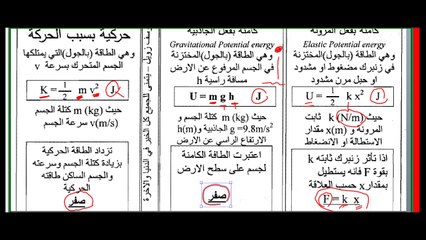 كامنة بفعل المرونة
Elastic Potential energy
وهي الطاقة (بالجول) المختزنة
في زنبرك مضغوط او مشدود
او حبل مرن مشدود
U = 1/2 k x² J
حيث k (N/m) ثابت
المرونة و x(m) مقدار
الاستطالة او الانضغاط
اذا تأثر زنبرك ثابته k
بقوة F فانه يستطيل
بمقدار x حسب العلاقة
F = k x
كامنة بفعل الجاذبية
Gravitational Potential energy
وهي الطاقة (بالجول) المختزنة
في الجسم المرفوع عن الارض
مسافة رأسية h
U = m g h J
حيث m (kg) كتلة الجسم و
g =9.8m/s² الجاذبية و h(m)
الارتفاع الراسي عن الارض
اعتبرت الطاقة الكامنة
لجسم على سطح الارض
صفر
حركية بسبب الحركة
وهي الطاقة (بالجول) التي يمتلكها
الجسم المتحرك بسرعة v
K = 1/2 m v² J
حيث m (kg) كتلة الجسم
و v(m/s) سرعة الجسم
تزداد الطاقة الحركية
بزيادة كتلة الجسم وسرعته
والجسم الساكن طاقته
الحركية
صفر